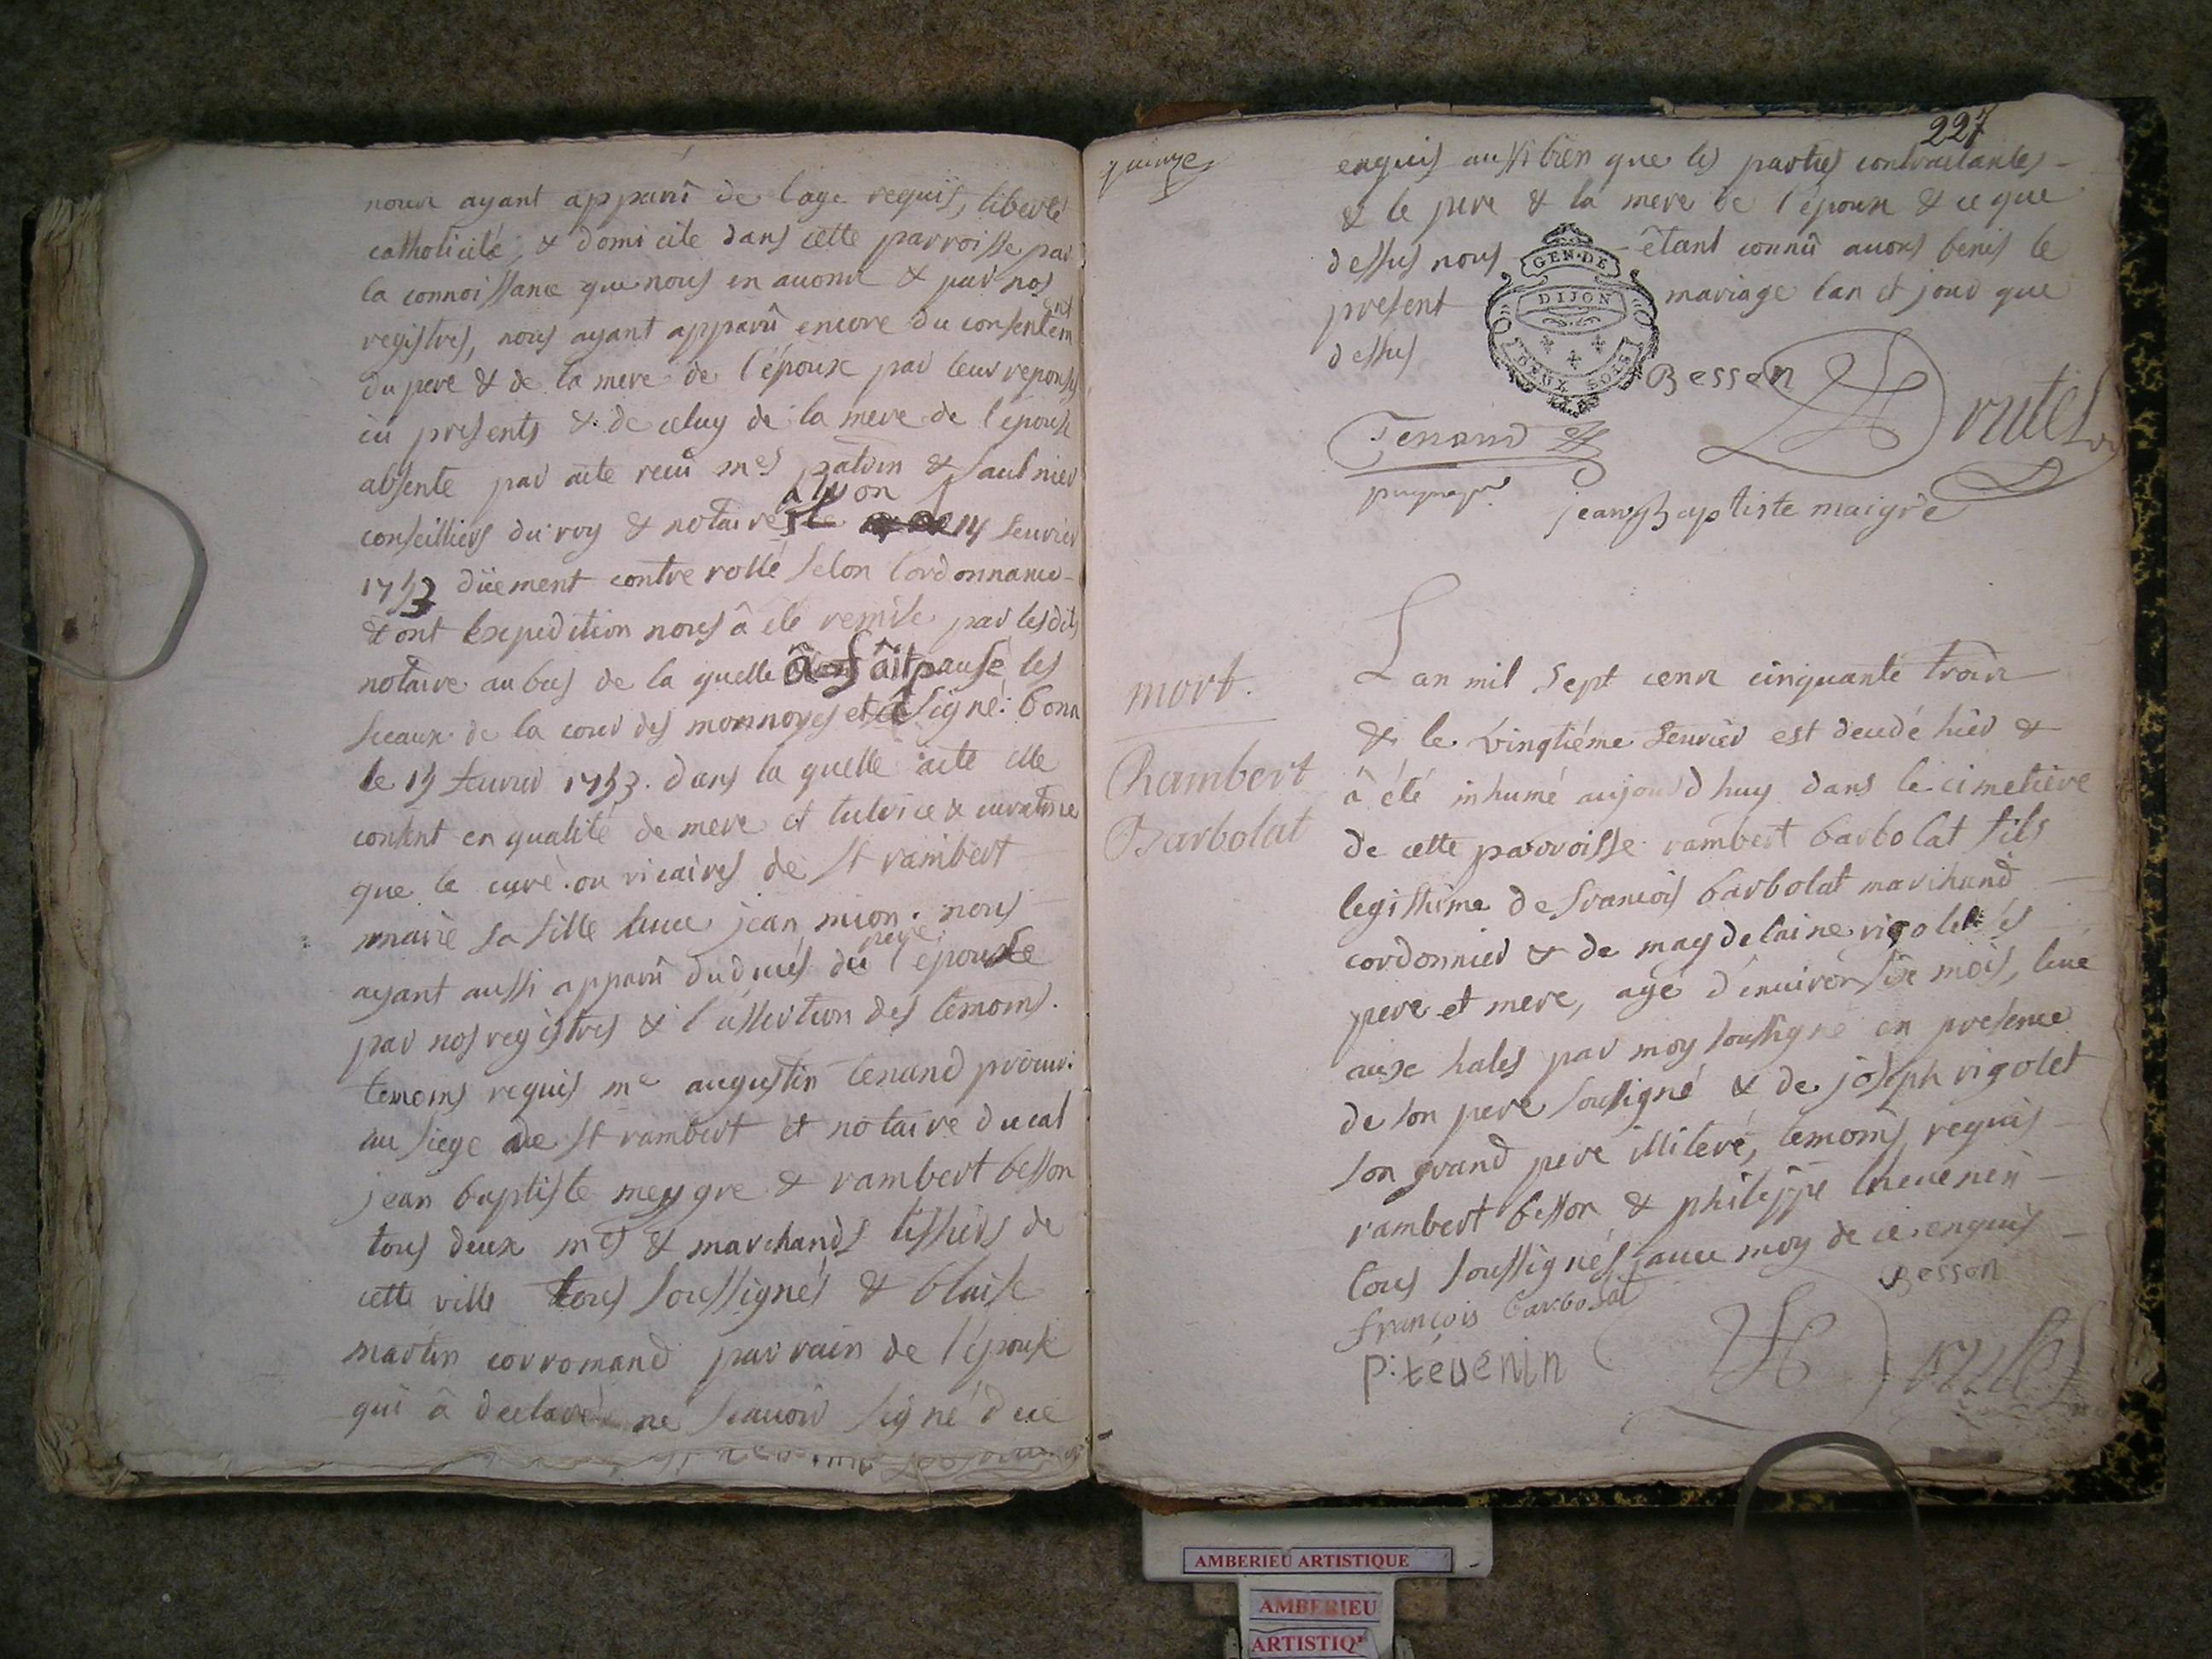 nous ayant apparû de l'age requis, liberté
catholicité, & domicile dans cette parroisse par
la connoissance que nous en avons & par nos
registres, nous ayant apparû encore du consentem
ent
du pere & de la mere de l'époux par leur reponses
ici presents & de celuy de la mere de l'épouse
absente par acte recu mes patrin & saulnier
a lyon
conseilliers du roy & notaires le 14 fevrier
1753 düement contre rollé selon l'ordonnance
dont l'expedition nous â été remise par lesdits
notaire au bas de la quelle â fâit pausé les
sceaux de la cour des monnoyes et signé: bonn
le 15 fevrier 1753. dans la quelle acte elle
consent en qualité de mere et tutrice & curatrice
que le curé ou vicaires de st rambert
marie sa fille avec jean mion. nous
ayant aussi apparû du deces du pere de l'épouse
par nos registres & l'assertion des temoins.
temoins requis me augustin tenand procur:
au siege de st rambert et notaire ducal
jean baptiste meygre & rambert besson
tous deux mes & marchands tissiers de
cette ville tous soussignés & blaise
martin corromand parrain de l'épouse
qui â declaré ne scavoir signé dece
227
enquis aussi bien que les parties contractantes
& le pere & la mere de l'époux & ce que
dessus nous étant connû avons benis le
present mariage l'an et jour que
dessus
GEN. DE
DIJON
DEUX SOLS
Besson
Tenand
Drutel
jean Baptiste maigre
mort.
Rambert
Barbolat
L'an mil sept cens cinquante trois
& le vingtiéme fevrier est decedé hier &
â été inhumé aujourd'huy dans le cimetière
de cette parroisse rambert barbolat fils
legitime de francois barbolat marchand
cordonnier & de magdelaine rigolet ses
pere et mere, agé d'environ six mois, levé
aux hales par moy soussigné en presence
de son pere soussigné & de joseph rigolet
son grand pere illiteré, temoins requis
rambert besson & philippe thevenin
tous soussignés avec moy de ce enquis
françois barbolat
Besson
p: tévenin
Drutel